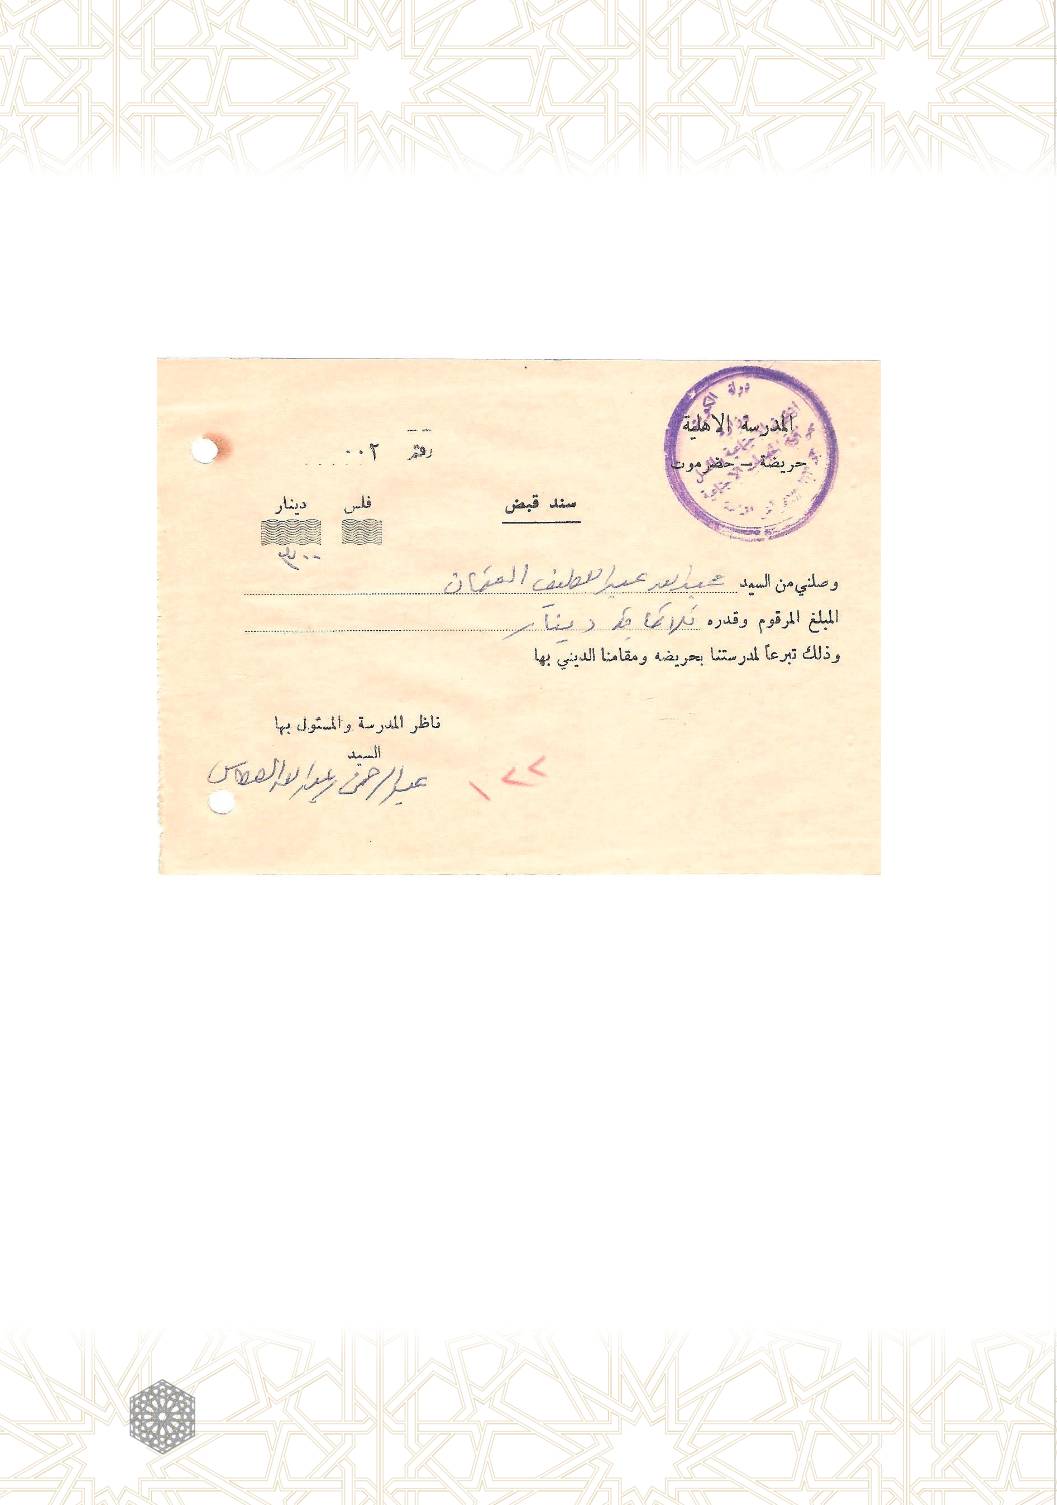 دولة الكويت
المدرسة الاهلية
حريضة - حضرموت
رقم ٠٠٢
سند قبض
فلس دينار
٣٠٠
وصلني من السيد عبدالله عبداللطيف العثمان
المبلغ المرقوم وقدره ثلاثمائة دينار
وذلك تبرعاً لمدرستنا بحريضه ومقامنا الديني بها
ناظر المدرسة والمسئول بها
السيد
عبدالرحمن عبدالله العطاس
١٢٢